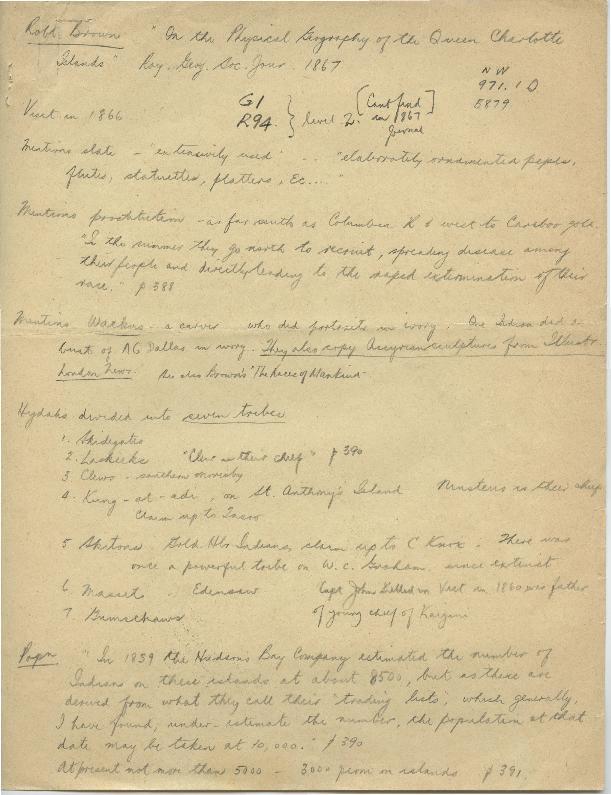 Robt. Brown "On the Physical Geography of the Queen Charlotte
Islands" Roy. Geog. Soc. Jour. 1867
NW
971.1 D
E879
G1
R94. } level 2. [Cant find
in 1867
Journal]
Visit in 1866
Mentions slate - "extensively used" ... "elaborately ornamented pipes,
flutes, statuettes, platters, &c...."
Mentions prostitution - as far south as Columbia R & west to Cariboo gold.
"In the summer they go north to recruit, spreading disease among
their people and directly tending to the rapid extermination of their
race." p 388
Mentions Waekus - a carver who did portraits in ivory. One Indian did a
bust of AG Dallas in ivory. They also copy Assyrian sculptures from Illustr.
London News. See also Brown's "The Races of Mankind"
Hydahs divided into seven tribes
1. Skidegates
2. Laskeeks "Clew is their chief" p 390
3. Clews - southern
4. Kung-at-adi, on St. Anthony's Island Ninsteris is their chief
claim up to Tasso
5 Skitons. Gold Hbr Indians, claim up to C Knox. There was
once a powerful tribe on W.C. Graham, since extinct
6 Masset. Edensaw Capt John killed on Vest in 1860 was father
7. Gumschaws of young chief of Kaigani
Popn. "In 1839 the Hudsons Bay Company estimated the number of
Indians on these islands at about 8500, but as these are
derived from what they call their 'trading lists', which generally,
I have found, under-estimate the number, the population at that
date may be taken at 10,000." p 390
At present not more than 5000 - 3000 on islands p 391.